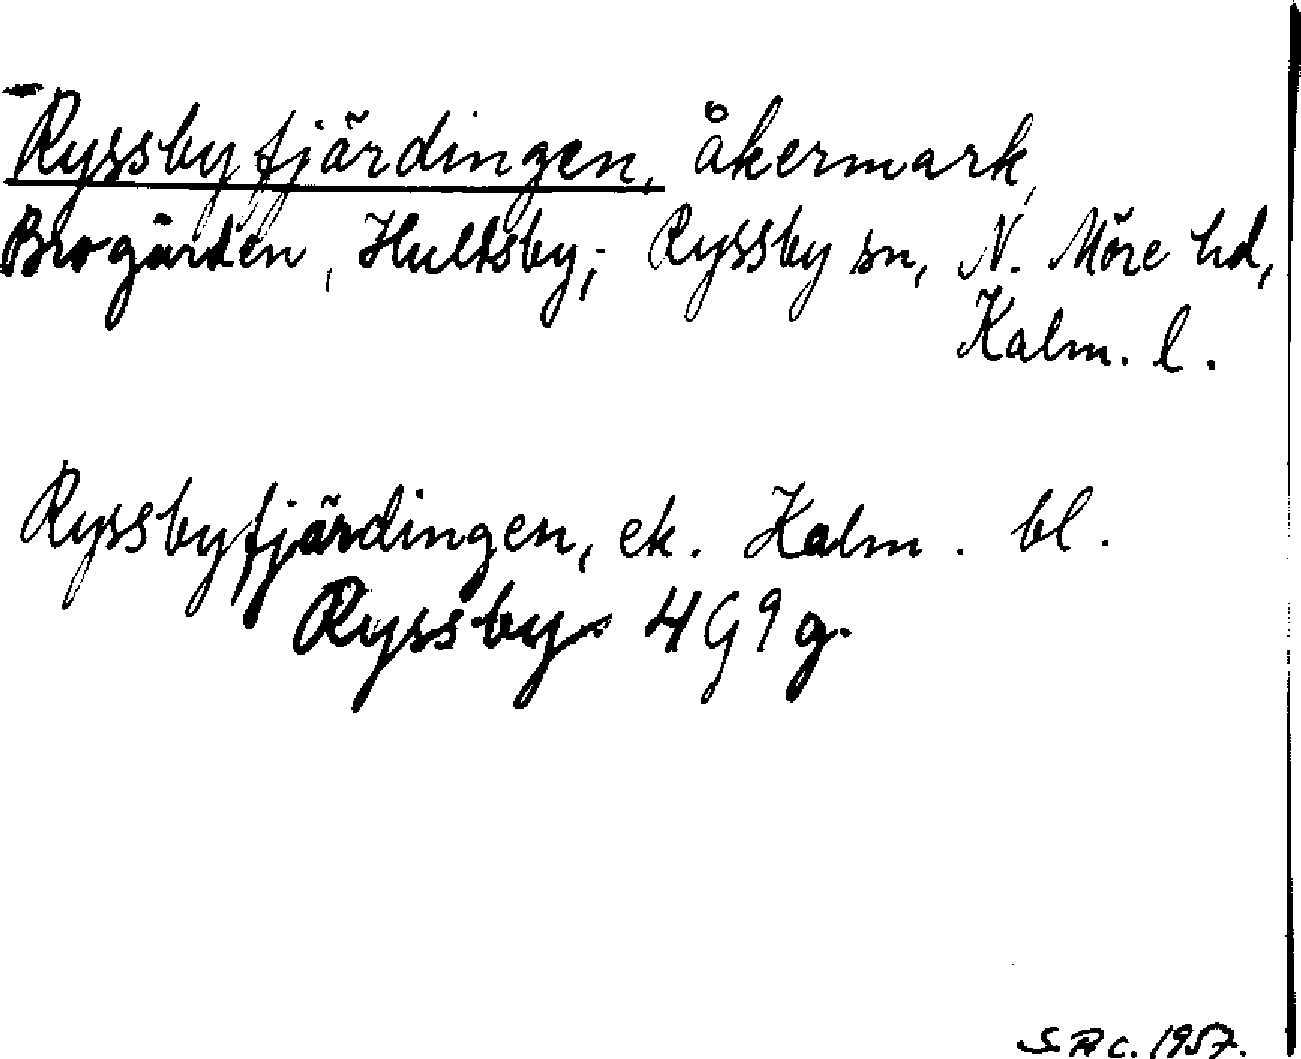 Ryssbyfjärdingen, åkermark,
Brogården, Hultsby, Ryssby sn, N. Möre hd,
Kalm. l.
Ryssbyfjärdingen, ek. Kalm. bl.
Ryssby 4G9g.
S.R.c. 1957.